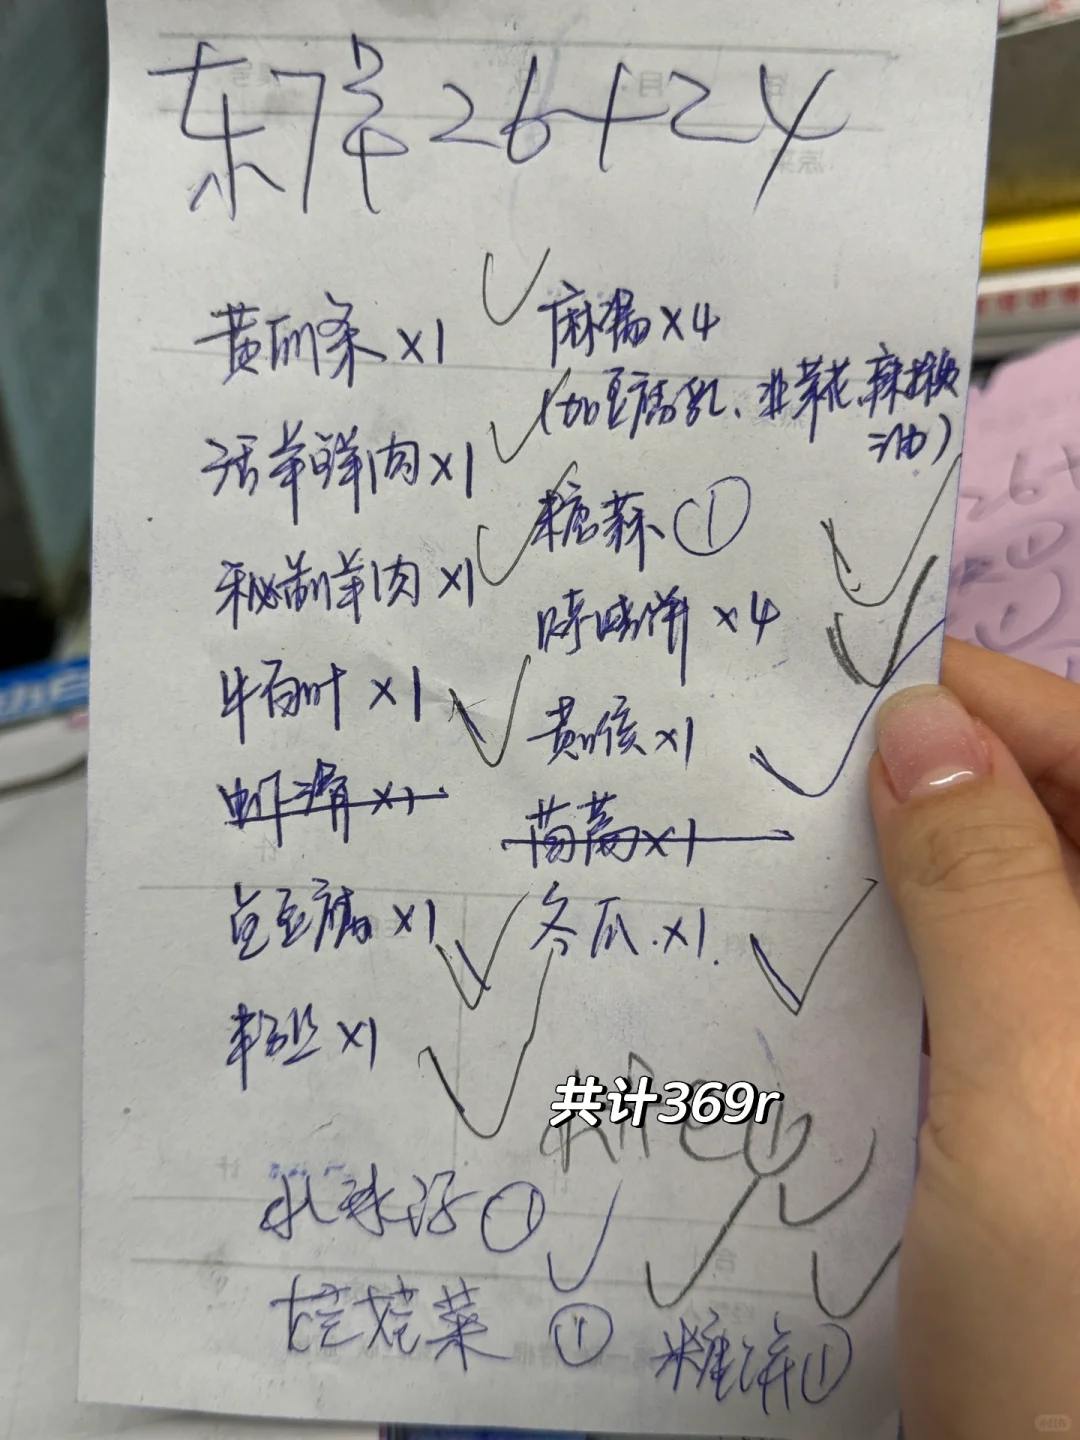 东7羊26+24
黄瓜条 x1
活羊鲜肉 x1
秘制羊肉 x1
牛百叶 x1
虾滑 x1
豆腐 x1
粉丝 x1
麻酱 x4
(加豆腐乳、韭菜花、麻辣油)
糖蒜 ①
烧饼 x4
黄喉 x1
茼蒿 x1
冬瓜 x1
共计369r
北冰洋 ①
菜 ①
糖饼 ①